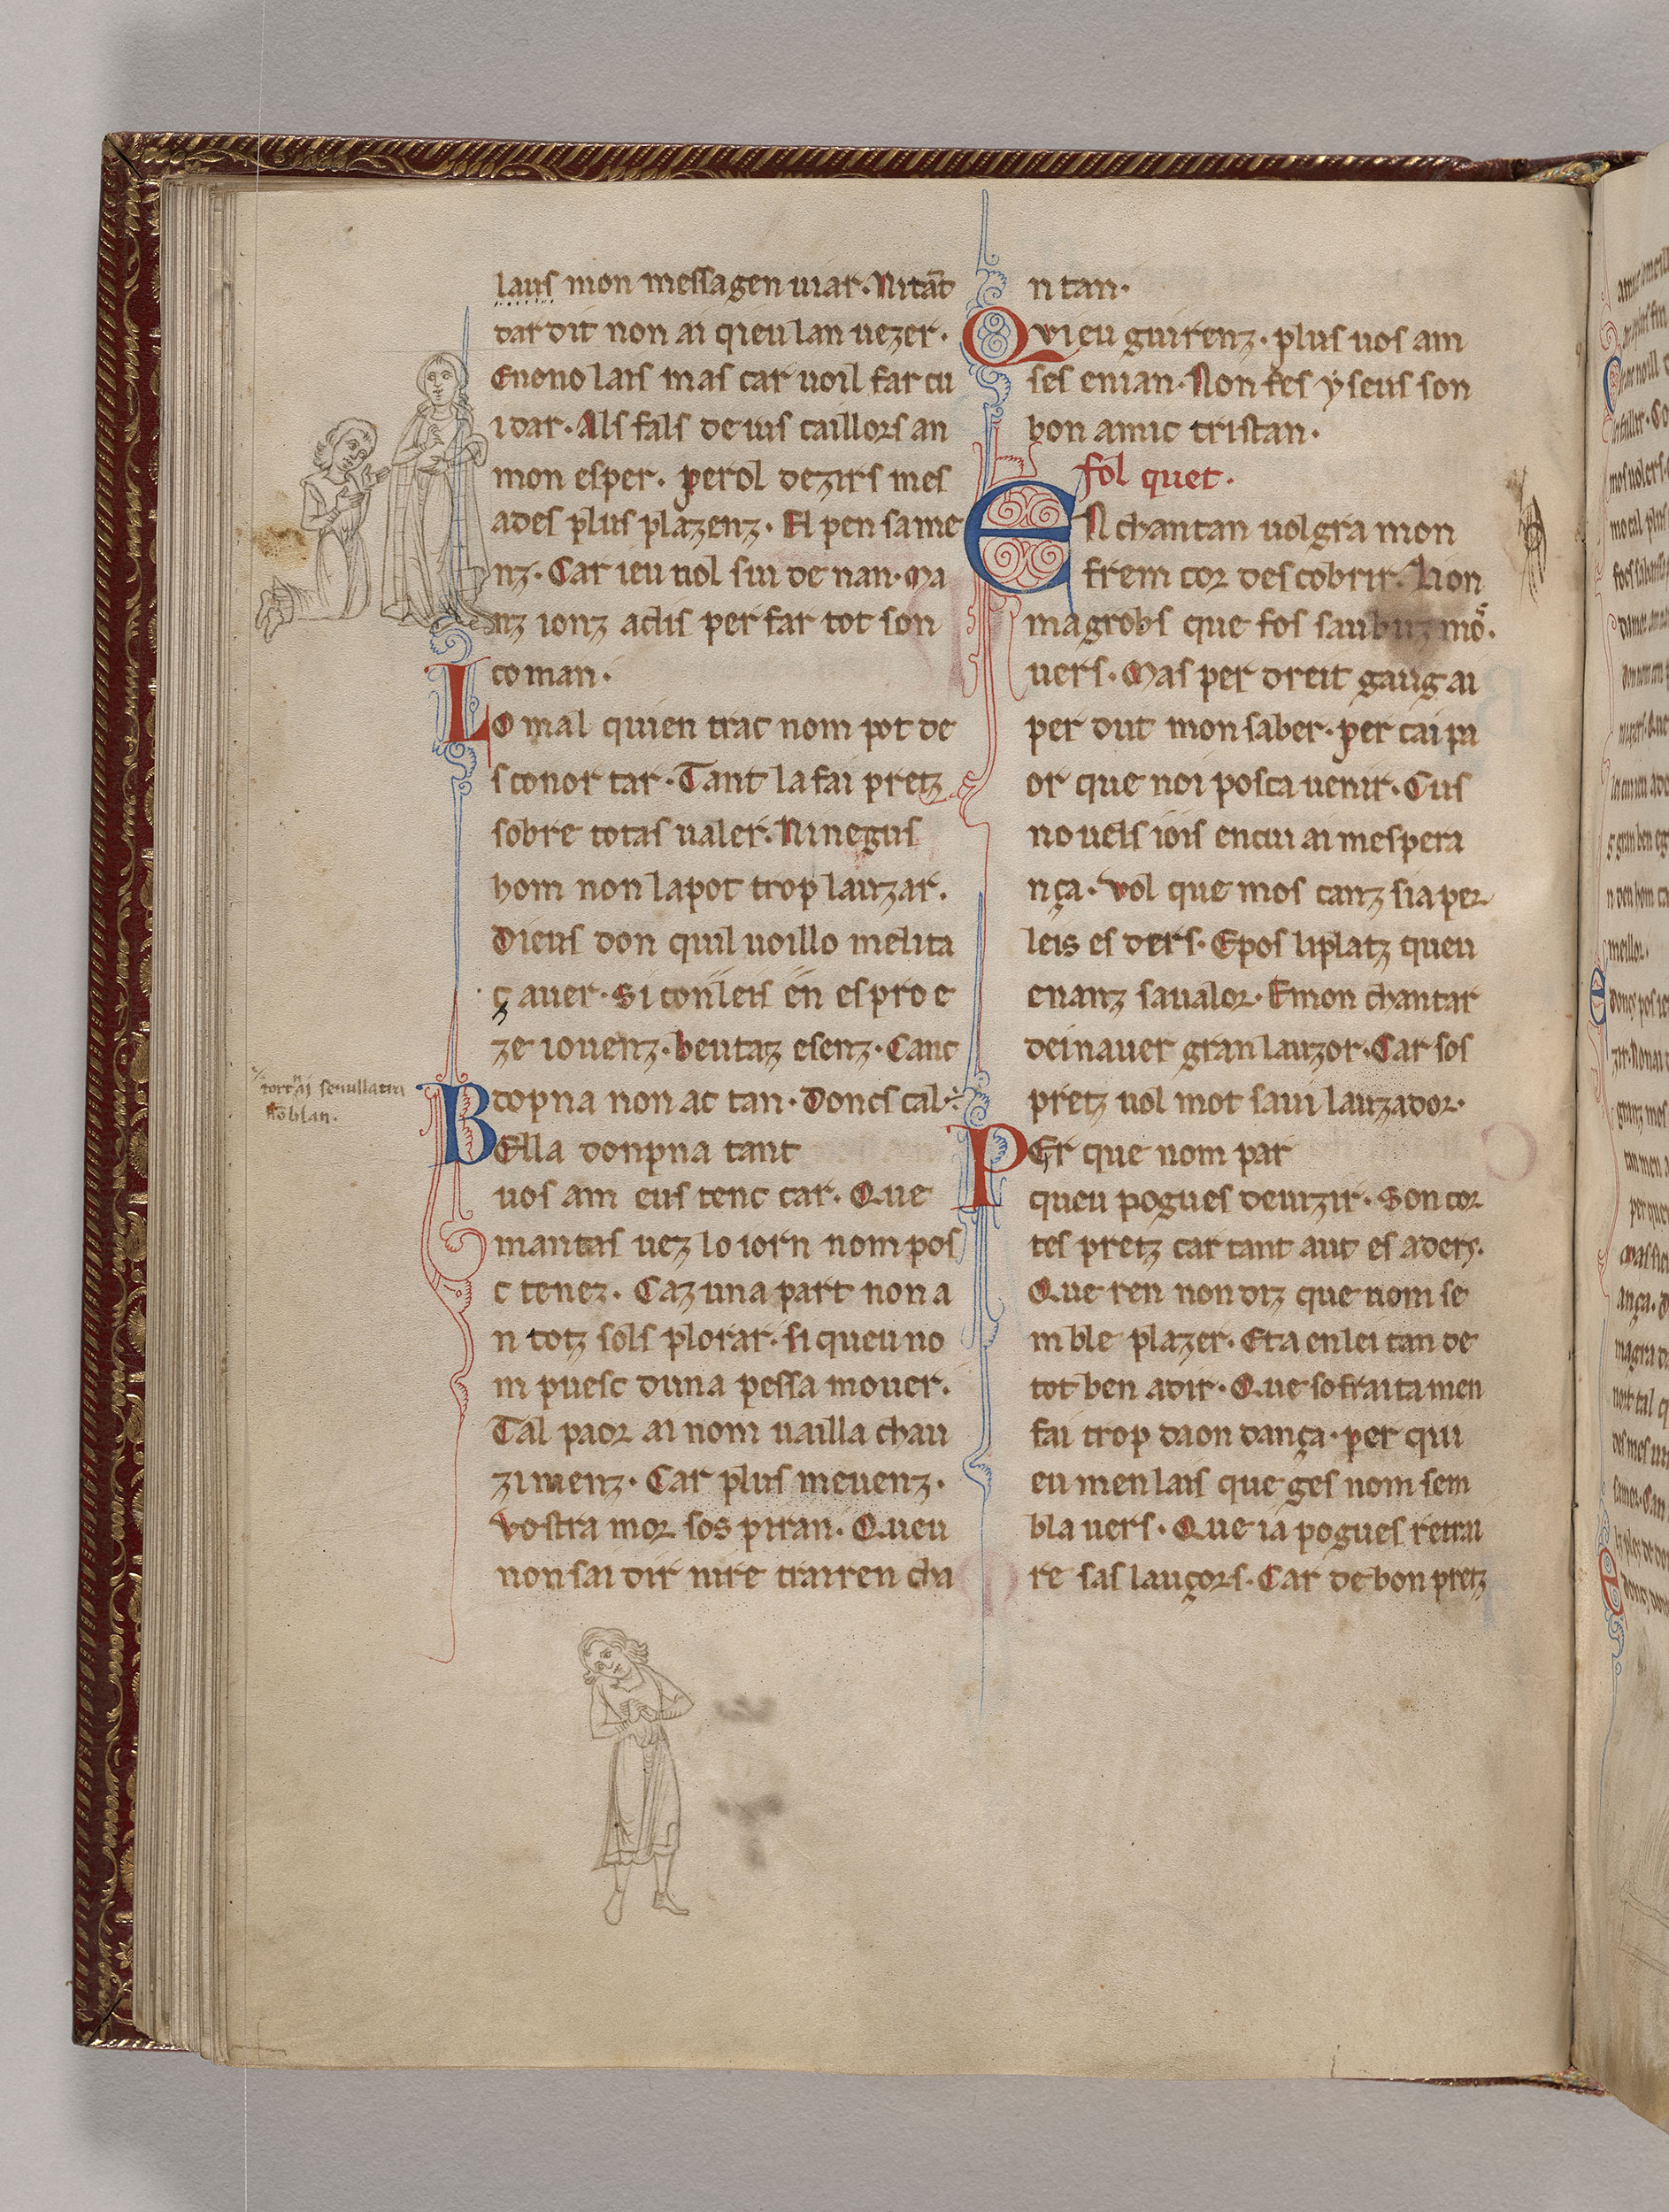 laus mon messagen uiar. Ni tāt
dar dit non ai qieu lan uezer.
Eneno lais mas car uoil far cu
idar. Als fals deuis caillors an
mon esper. perol dezirs mes
ades plus plazenz. El pensame
nz. Car ieu uol sui denan. Ma
nz ionz aclis per far tot son
coman.
Lo mal quien trac nom pot de
sconortar. Tant la fai pretz
sobre totas ualer. Ni negus
hom non la pot trop lauzar.
Dieus don quil uoillo melita
ç auer. Si con leis en es proe
ze iouenz. beutaz esenz. Canc
dopna non ac tan. Doncs cal
tort nai senullatra
nō blan.
BElla donpna tant
uos am eus tenc car. Que
mantas uez lo iorn nom pos
c tenez. Caz una part non a
n totz sols plorar. si queu no
m puesc duna pessa mouer.
Tal paor ai nom uailla chau
zimenz. Car plus meuenz.
vostra mor sospiran. Queu
non sai dir nire trairen cha
n tan.
Qvieu guirenz. plus uos am
ses enian. Non fes yseus son
bon amic tristan.
fol quet.
EN chantan uolgra mon
frem cor descobrir. Lion
magrobs que fos saubuz mō.
uers. Mas per dreit gaug ai
perdut mon saber. per cai pa
or que noi posca uenir. Cus
nouels iois encui ai mespera
nça. vol que mos canz sia per
leis esders. Epos li platz queu
enanz saualor. Emon chantar
dei nauer gran lauzor. Car sos
pretz uol mot saui lauzador.
PEr que nom par
queu pogues deuizir. Son cor
tes pretz car tant aut es aders.
Que ren non diz que nom se
mble plazer. Eta en lei tan de
tot ben a dir. Que sofraita men
fai trop daon dança. per qui
eu men lais que ges nom sem
bla uers. Que ia pogues retrai
re sas lauçors. Car de bon pretz